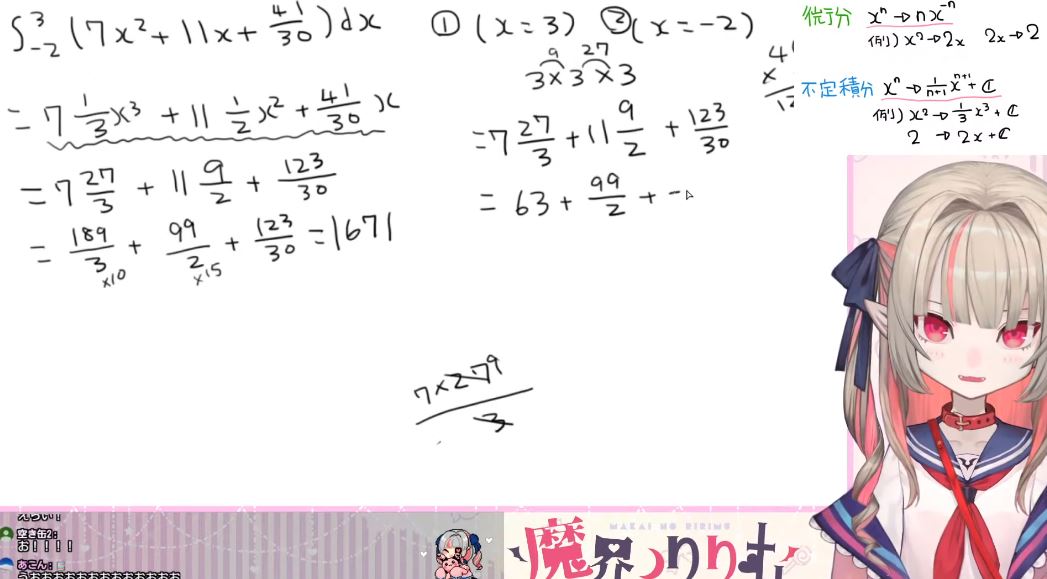 ∫₋₂³ (7x² + 11x + 41/30) dx
= 7 1/3 x³ + 11 1/2 x² + 41/30 x
= 7 27/3 + 11 9/2 + 123/30
= 189/3 + 99/2 + 123/30 = 1671
×10 ×15
① (x = 3) ②(x = -2)
9 27
3×3×3
= 7 27/3 + 11 9/2 + 123/30
= 63 + 99/2 +
7×27 9
3
微分 xⁿ → nx⁻ⁿ
例) x² → 2x 2x → 2
不定積分 xⁿ → 1/n+1 xⁿ⁺¹ + C
例) x² → 1/3 x³ + C
2 → 2x + C
えらい!
空き缶2:
お!!!!
あこん:
MAKAI NO RIRIMU
魔界ノりりむ